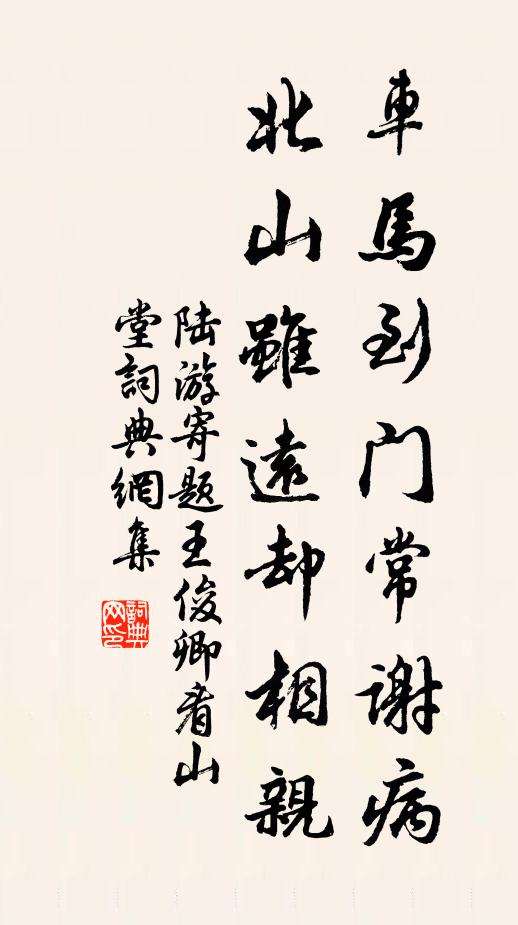 車馬到門常謝病
北山雖遠却相親
陆游寄题王俊卿看山
堂詞典網集
詞典
网印